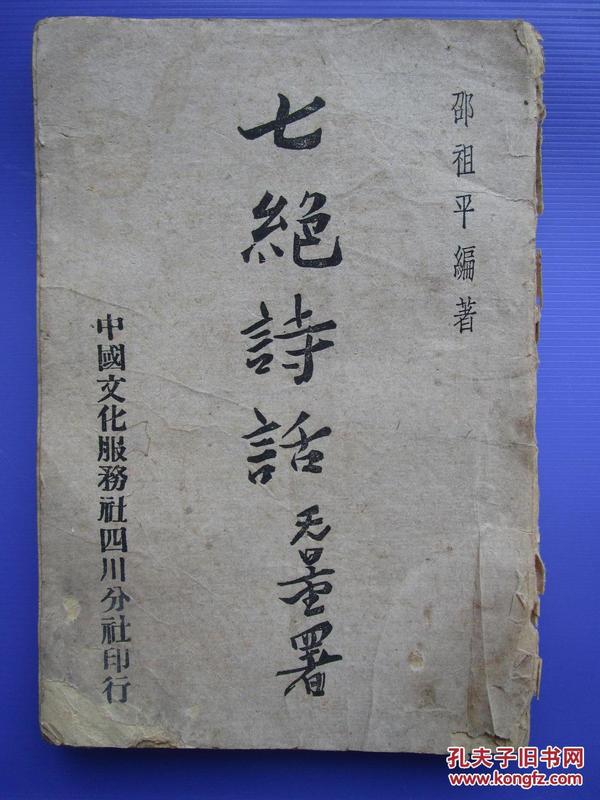 邵祖平編著
七絕詩話
无量署
中國文化服務社四川分社印行
孔夫子旧书网
www.kongfz.com